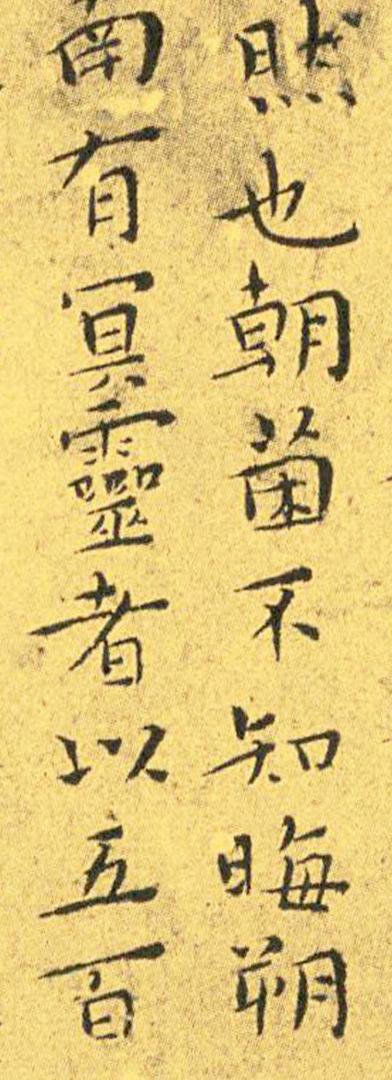 然也朝菌不知晦朔
南有冥靈者以五百